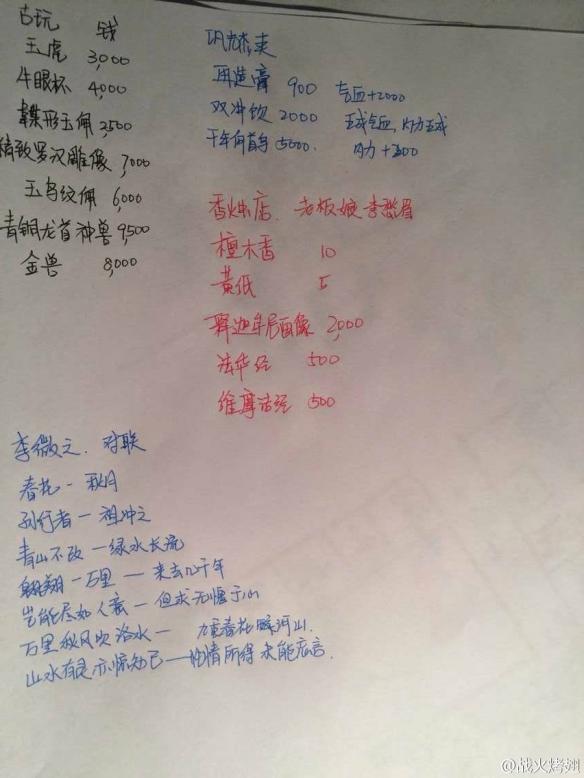 古玩 钱
玉虎 3,000
牛眼杯 4,000
蝶形玉佩 3500
精致罗汉雕像 7,000
玉鸟纹佩 6,000
青铜龙首神兽 9,500
金兽 8,000
再造膏 900 气血+2000
双冲饮 2000 五成气血,内力五成
千年何首乌 5000. 内力+300
香烛店. 老板娘李翠眉
檀木香 10
黄纸 5
释迦牟尼画像 2,000
法华经 500
维摩诘经 500
李微之. 对联
春花 - 秋月
孙行者 - 祖冲之
青山不改 - 绿水长流
翱翔一万里 — 来去几千年
岂能尽如人意 - 但求无愧于心
万里秋风吹洛水 - 九重春花暖河山.
山水有灵亦惊知己 — 性情所得未能忘言.
@战火烤翅